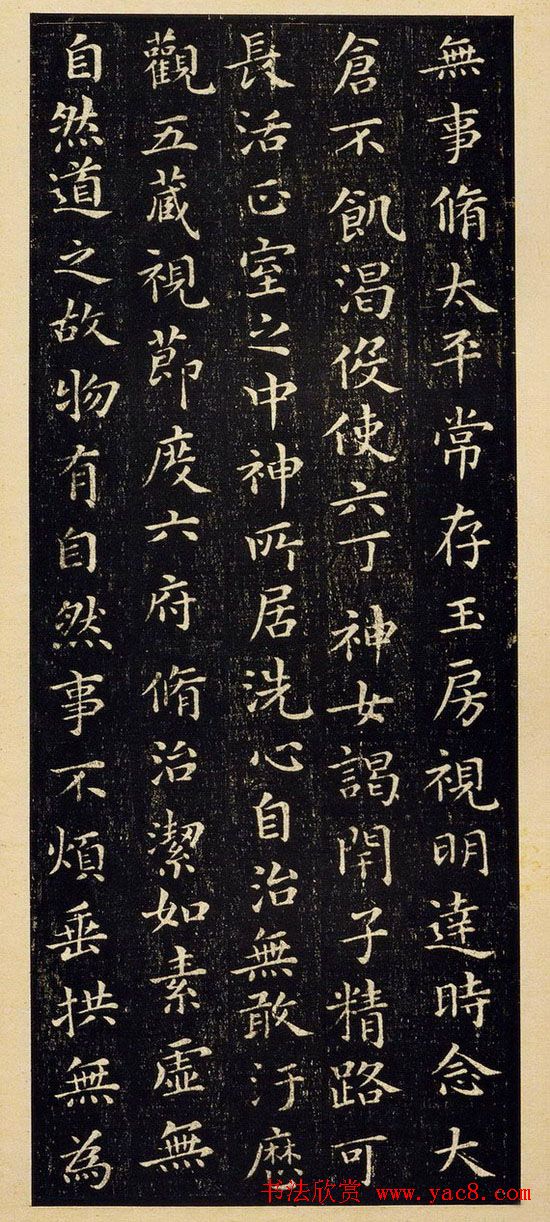 無事脩太平常存玉房視明達時念大
倉不飢渴伇使六丁神女謁閇子精路可
長活正室之中神所居洗心自治無敢汙歷
觀五藏視節度六府脩治潔如素虛無
自然道之故物有自然事不煩垂拱無為
书法欣赏 www.yac8.com